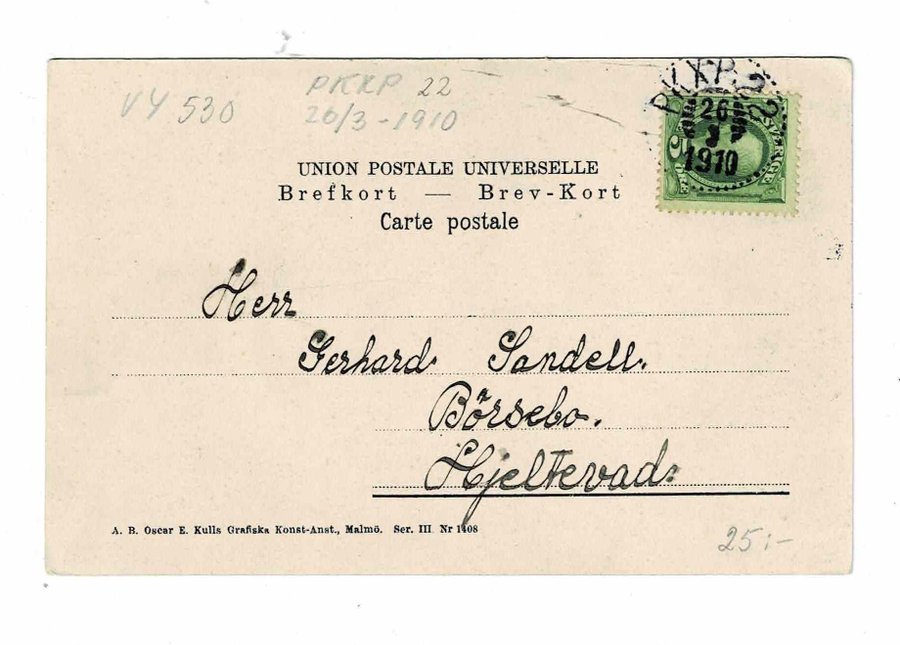 VY 530
PKXP 22
26/3-1910
PKXP. 22
26
3
1910
SVERIGE
5 ÖRE
UNION POSTALE UNIVERSELLE
Brefkort — Brev-Kort
Carte postale
Herr
Gerhard Sandell.
Börsebo.
Hjeltevad.
A. B. Oscar E. Kulls Grafiska Konst-Anst., Malmö. Ser. III Nr 1408
25:-